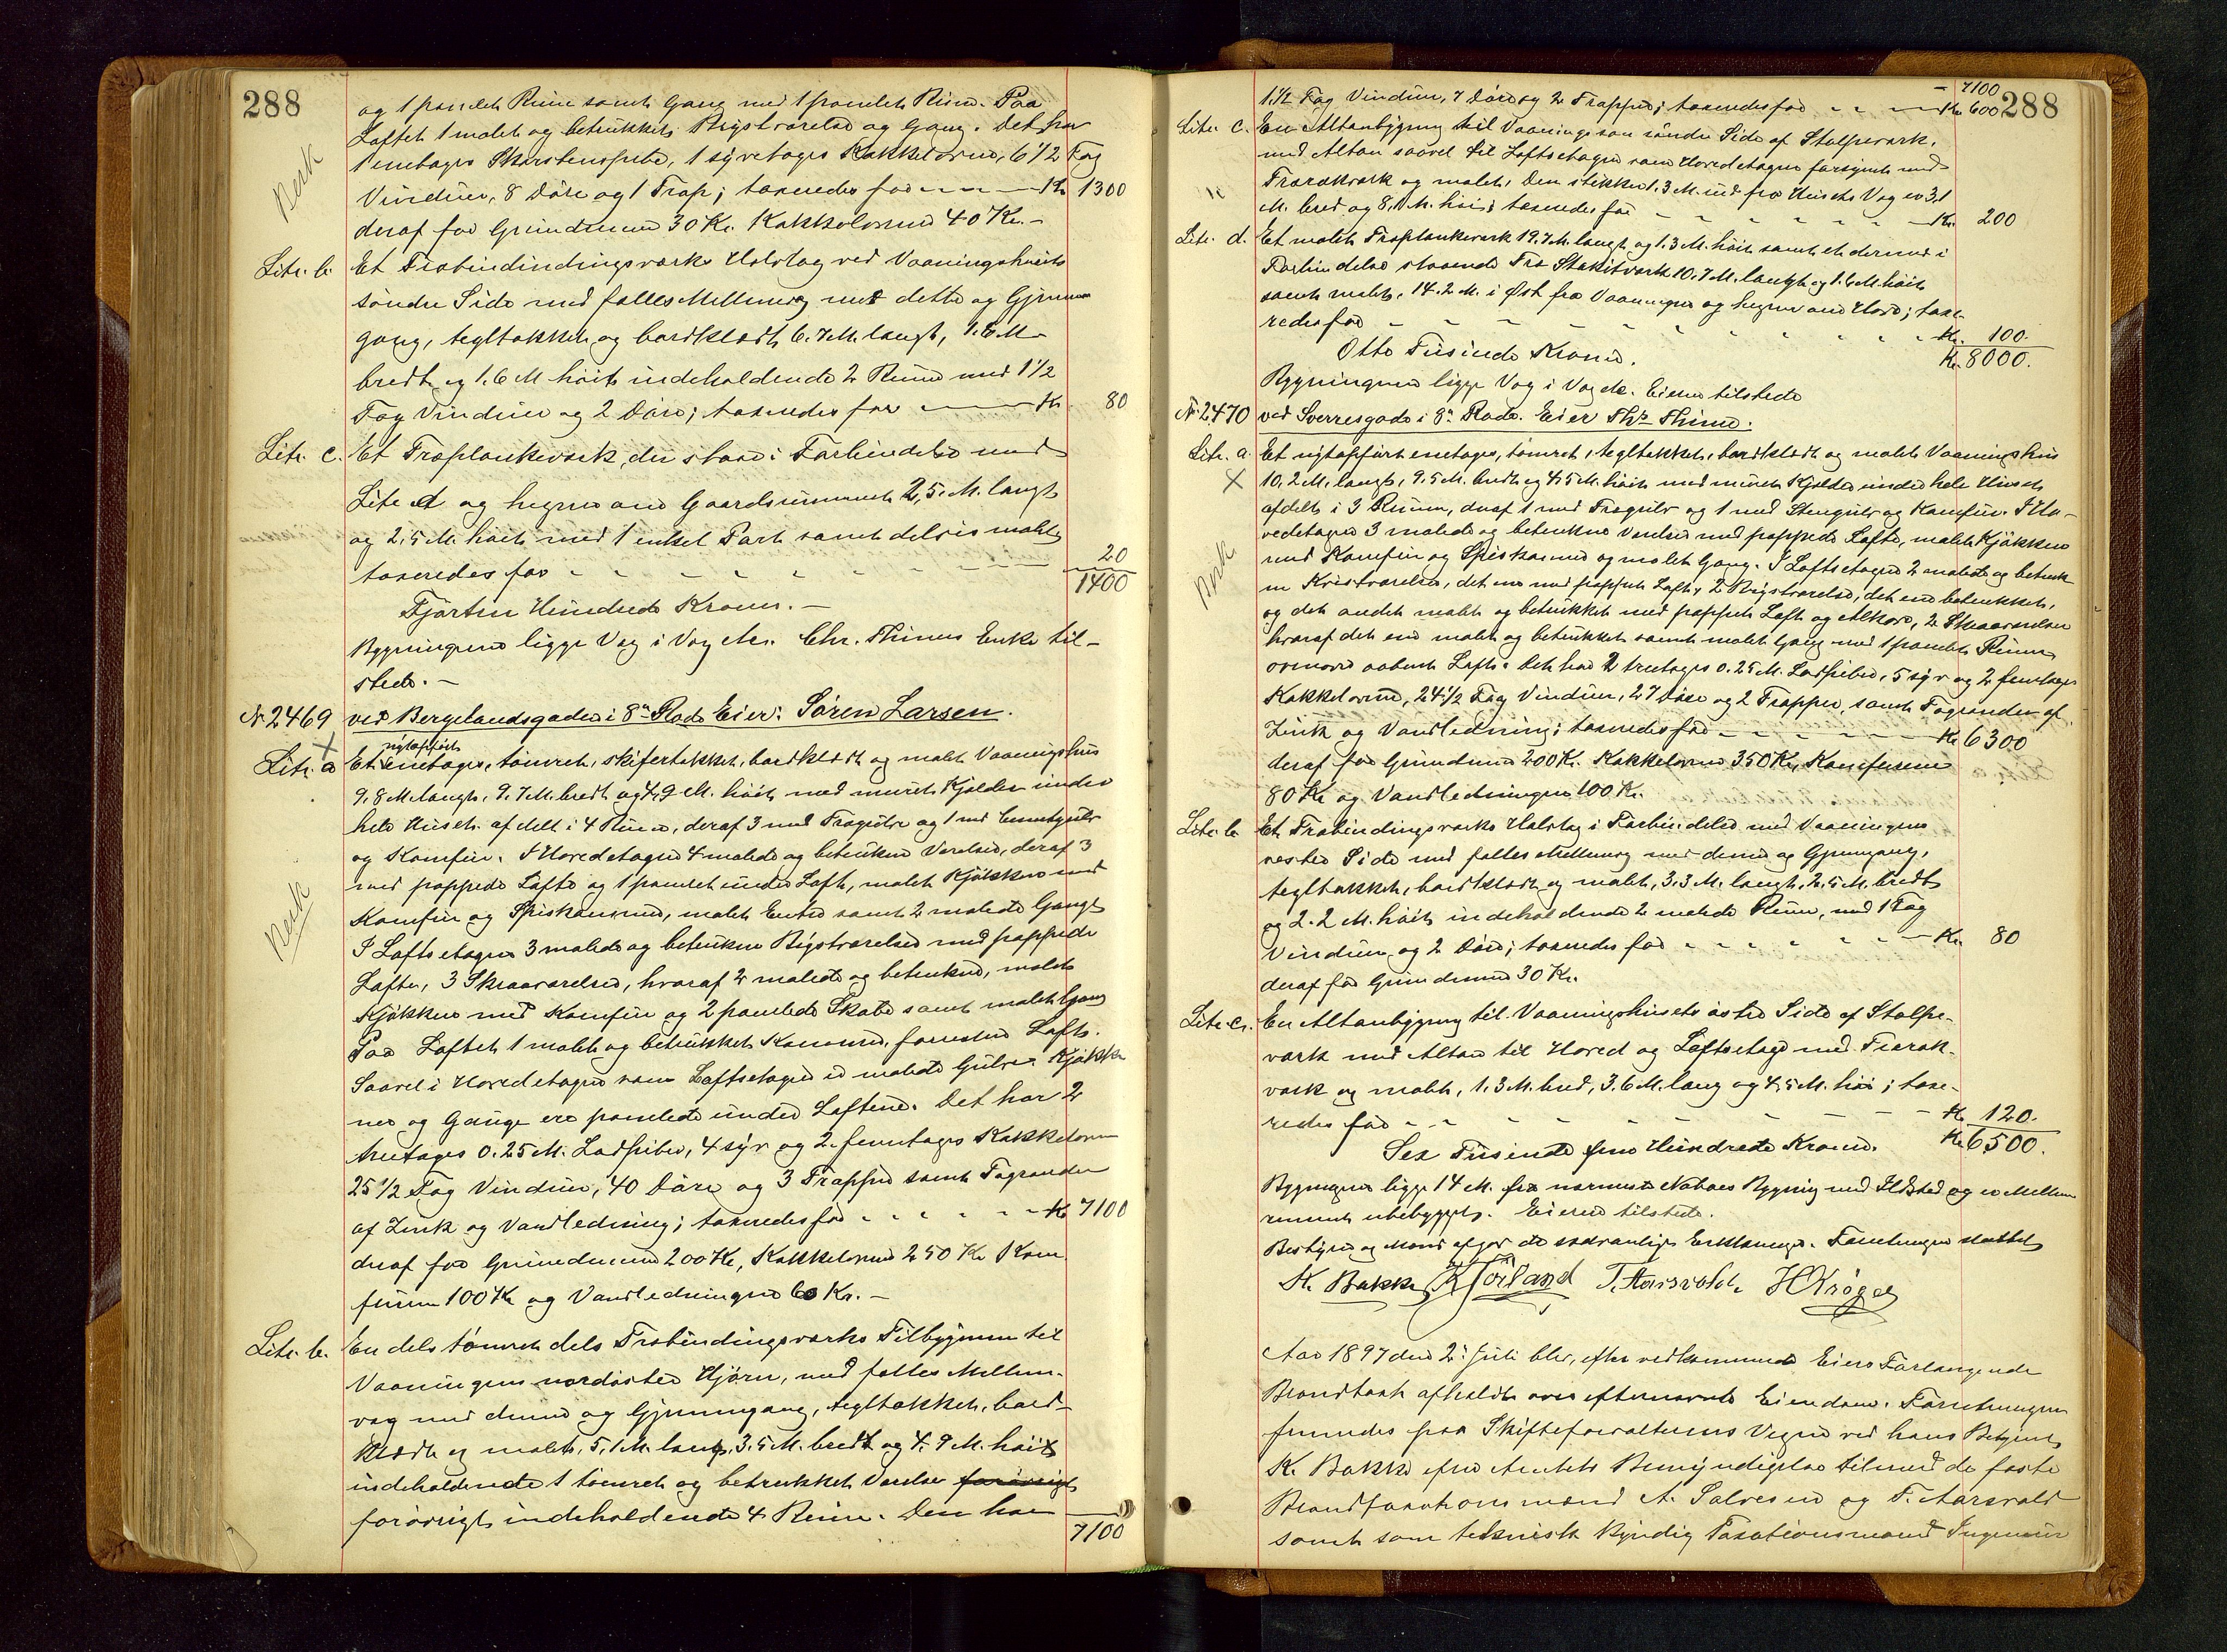 288
og 1 panelet Rum samt Gang med 1 panelet Rum. Paa
Loftet 1 malet og betrukket Bigstværelse og Gang. Det har
1 enetages Skorstenspibe, 1 syvetages Kakkelovn, 6 1/2 Fag
Vinduer, 8 Døre og 1 Trap; taxeredes for Kr 1300
deraf for Grundmuren 30 Kr. Kakkelovnen 40 Kr.
Litr. b. Et Træbindindingsværks Halvtag ved Vaaningshusets
søndre Side med fælles Mellemvæg med dette og Gjennem-
gang, tegltækket og bordklædt 6.7 M. langt, 1.6 M.
bredt og 1.6 M høit indeholdende 2 Rum med 1 1/2
Fag Vinduer og 2 Døre; taxeredes for Kr. 80
Litr. c. Et Træplankeværk, der staar i Forbindelse med
Litr a og hegner om Gaardsrummet 2,5 M. langt
og 2.5 M. høit med 1 enkel Port samt delvis malet
taxeredes for 20
1400
Fjorten Hundrede Kroner.
Bygningerne ligge Væg i Væg etc. Chr. Thimes Enke til-
stede.
Berk
Nr 2469 ved Bergelandsgaden i 8de Rode Eier: Søren Larsen.
Litr. a Et nyopført enetages, tømret, skifertækket, bordklædt og malet Vaaningshus
9.8 M langt, 9.7 M. bredt og 4.9 M. høit med muret Kjælder under
hele Huset. afdelt i 4 Rum, deraf 3 med Trægulv og 1 med Cementgulv
og Komfur. I Hovedetagen 4 malede og betrukne Værelser, deraf 3
med pappede Lofte og 1 panelet under Loft, malet Kjøkken med
Komfur og Spiskammer, malet Entre samt 2 malede Gange
I Loftsetagen 3 malede og betrukne Bigstværelser med pappede
Lofter, 3 Skraaværelser, hvoraf 2 malede og betrukne, malet
Kjøkken med Komfur og 2 panelede Skabe samt malet Gang
Paa Loftet 1 malet og betrukket Kammer, forresten Loft.
Saavel i Hovedetagen som Loftsetagen er malede Gulve. Kjøkke-
ner og Gange ere panelede under Loftene. Det har 2
treetages 0.25 M. Ladpiber, 4 syv og 2 femetages Kakkelovne
25 1/2 Fag Vinduer, 40 Døre og 3 Trapper samt Tagrender
af Zink og Vandledning; taxeredes for Kr 7100
deraf for Grundmuren 200 Kr, Kakkelovnene 250 Kr Kom-
furene 100 Kr og Vandledningen 60 Kr.
Berk
Litr. b. En dels tømret dels Træbindingsværks Tilbygning til
Vaaningens nordøstre Hjørne, med fælles Mellem-
væg med denne og Gjennemgang, tegltækket, bord-
klædt og malet, 5,1 M. lang, 3.5 M. bredt og 4.9 M. høit
indeholdende 1 tømret og betrukket Værelse forøvrigt
forøvrigt indeholdende 4 Rum. Den har
7100
7100
288
1 1/2 Fag Vinduer, 7 Døre og 2 Trapper; taxeredes for Kr 600
Litr. C. En Altanbygning til Vaaningens søndre Side af Stolpeværk.
med Altan saavel til Loftsetagen som Hovedetagen forsynet med
Træværk og malet. Den stikker 1.3 M. ud fra Husets Væg er 3,1
M. bred og 8,1 M. høi; taxeredes for Kr. 200
Litr. d. Et malet Træplankeværk 19.7 M. langt og 1.3 M. høit samt et dermed i
Forbindelse staaende Træ Stakitværk 10.7 M. langt og 1.6 M. høit
samt malet. 14.2 M. i Øst fra Vaaningen og hegner om Have; taxe-
redes for Kr. 100.
Otte Tusinde Kroner. Kr. 8000.
Bygningerne ligge Væg i Væg etc. Eieren tilstede
Nr 2470 ved Sverresgade i 8de Rode. Eier Ths Thime.
Litr. a. Et nyopført enetages, tømret, tegltækket, bordklædt og malet Vaaningshus
10.2 M. langt, 9.5 M. bredt og 4.5 M. høit med muret Kjælder under hele Huset
afdelt i 3 Rum, deraf 1 med Trægulv og 1 med Stengulv og Komfur. I Ho-
vedetagen 3 malede og betrukne Værelser med pappede Lofte, malet Kjøkken
med Komfur og Spiskammer og malet Gang. I Loftsetagen 2 malede og betruk-
ne Kvistværelser, det ene med pappet Loft, 2 Bigstværelser, det ene betrukket,
og det andet malet og betrukket med pappet Loft og Alkove, 2 Skraaværelser
hvoraf det ene malet og betrukket samt malet Gang med 1 panelet Rum
ovenover aabent Loft. Det har 2 treetages 0.25 M. Ladpiber, 5 syv og 2 femetages
Kakkelovne, 24 1/2 Fag Vinduer, 27 Døre og 2 Trapper, samt Tagrender af
Zink og Vandledning; taxeredes for Kr 6300
deraf for Grundmuren 200 Kr. Kakkelovnene 350 Kr, Komfurene
80 Kr og Vandledningen 100 Kr.
Berk
Litr. b. Et Træbindingsværks Halvtag i Forbindelse med Vaaningens
vestre Side med fælles Mellemvæg med denne og Gjennemgang,
tegltækket, bordklædt og malet, 3.3 M. langt, 2.5 M. bredt
og 2.2 M. høit indeholdende 2 malede Rum, med 1 Fag
Vinduer og 2 Døre; taxeredes for Kr. 80
deraf for Grundmuren 30 Kr.
Litr. c. En Altanbygning til Vaaningshusets østre Side af Stolpe-
værk med Altan til Hoved og Loftsetage med Træræk-
værk og malet, 1.3 M. bred, 3.6 M. lang og 4,5 M. høi; taxe-
redes for Kr 120.
Sex Tusinde fem Hundrede Kroner. Kr 6500.
Bygningerne ligge 14 M. fra nærmeste Naboes Bygning med Ildsted og er Mellem-
rummet ubebygget. Eieren tilstede.
Bestyrer og Mænd afgav de sædvanlige Erklæringer. Forretningen sluttet
K. Bakke T. Aarsvold. H Krøger
Aar 1897 den 2. Juli blev, efter vedkommende Eiers Forlangende
Brandtaxt afholdt over efternævnte Eiendom. Forretningen
fremmedes paa Skifteforvalterens Vegne ved hans Betjent
K. Bakke efter Amtets Bemyndigelse tilmed de faste
Brandtaxationsmænd A. Salvesen og T. Aarsvold
samt som teknisk Kyndig Taxationsmand Ingeniør